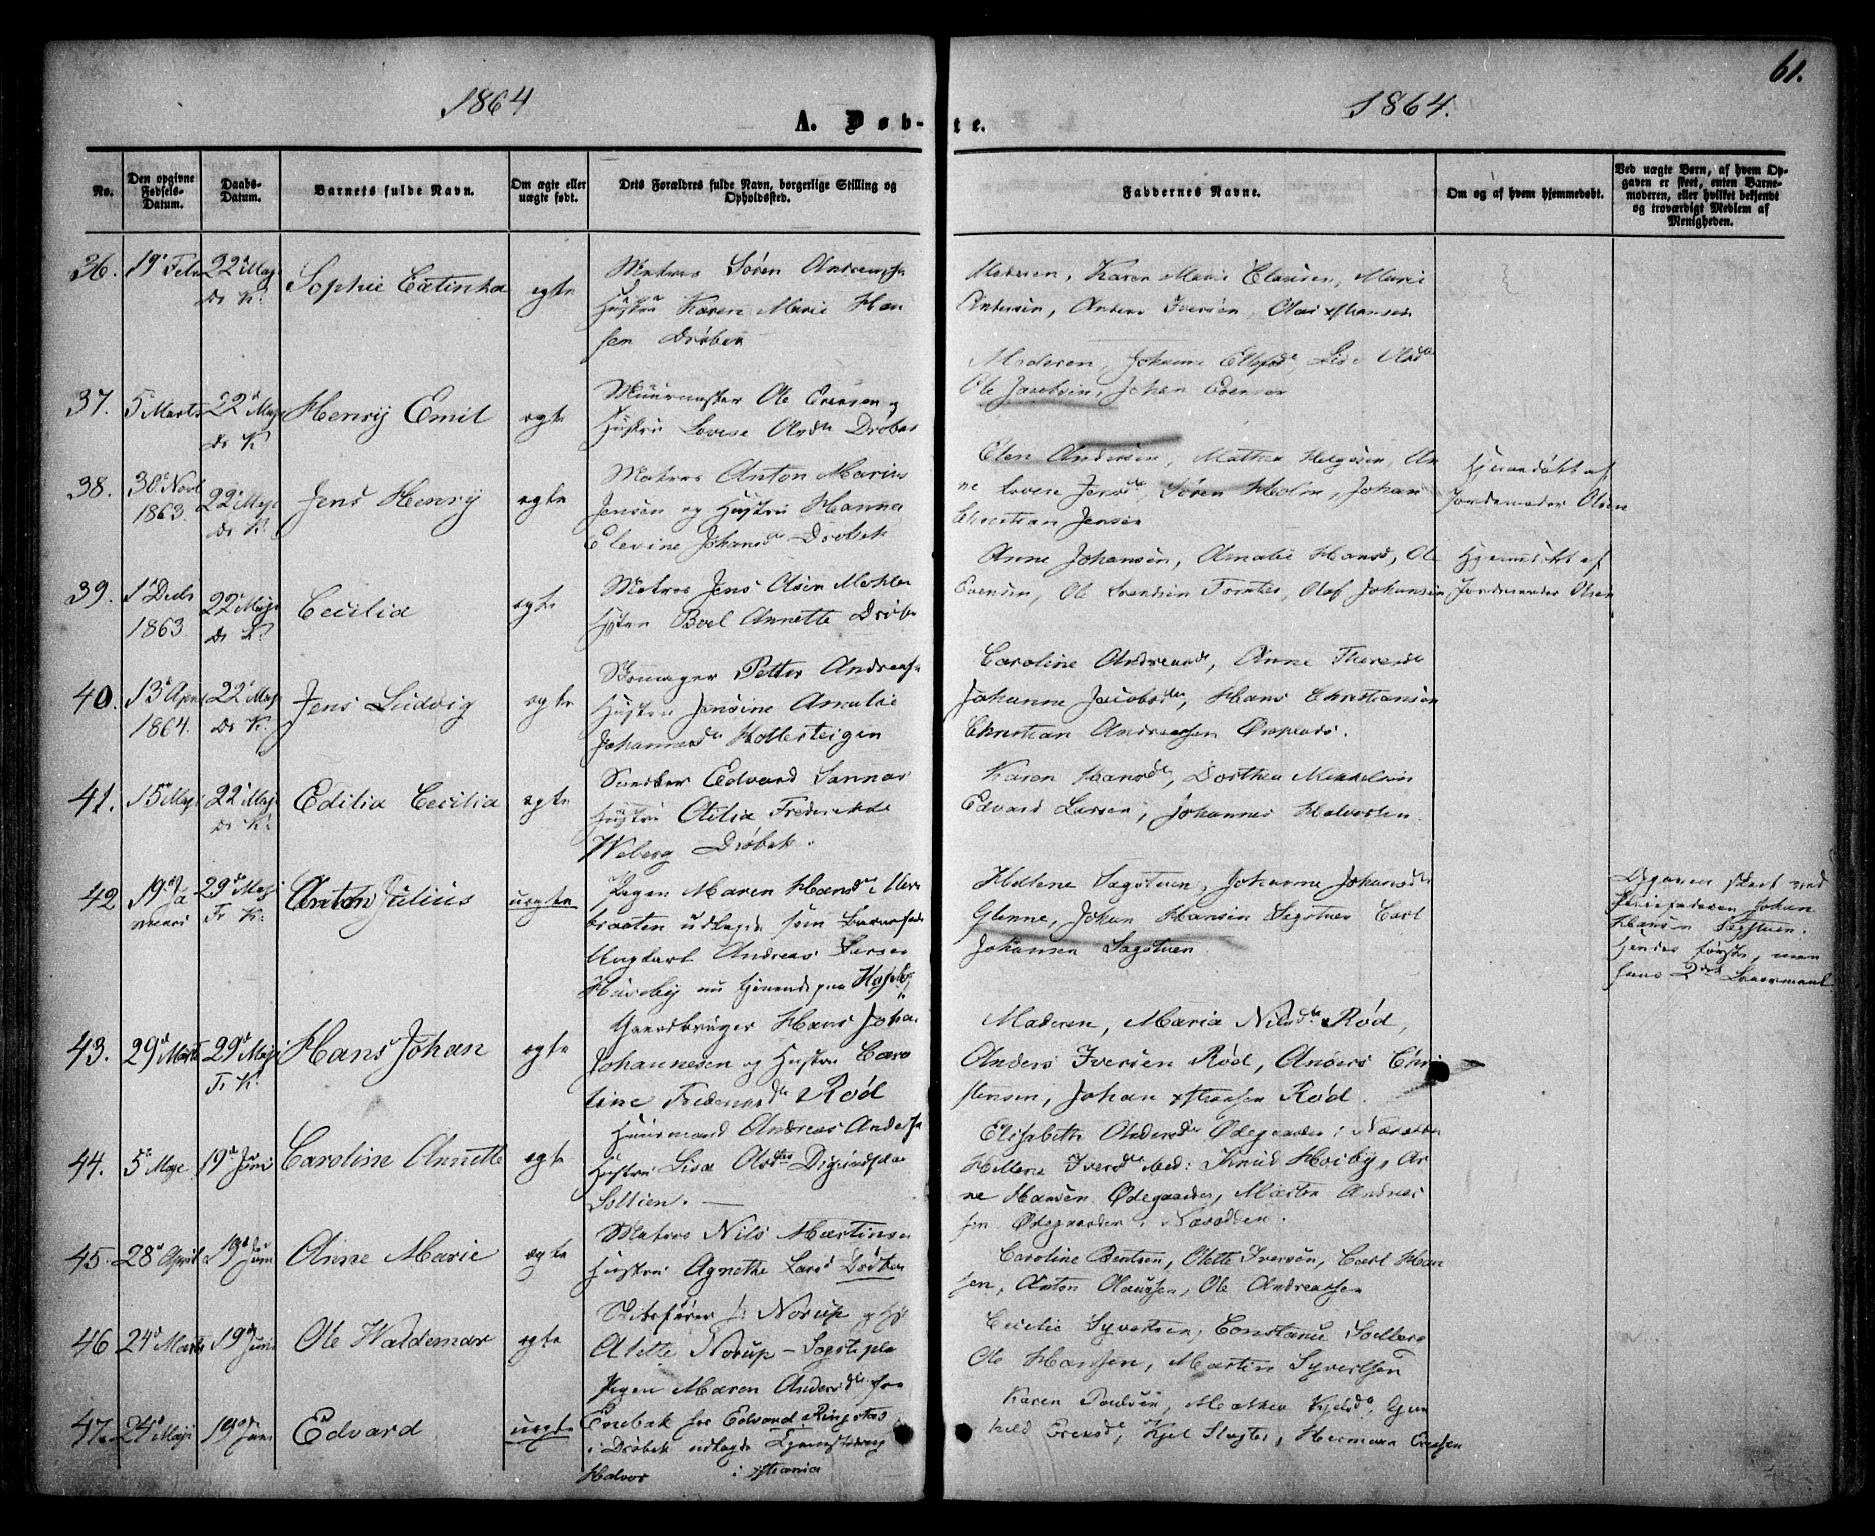 1864
1864.
61.
A. Døb-te.
No.
Den opgivne Fødsels-Datum.
Daabs-Datum.
Barnets fulde Navn.
Om ægte eller uægte født.
Dets Forældres fulde Navn, borgerlige Stilling og Opholdssted.
Faddernes Navne.
Om og af hvem hjemmedøbt.
Ved uægte Børn, af hvem Opgaven er skeet, enten Barnemoderen, eller hvilket bekjendt og troværdigt Medlem af Menigheden.
36. 19 Febr 22 Maji Dr K. Sophie Catinka egte
Matros Sören Andreasse
Hustru Karen Marie Han
sen Dröbak
Moderen, Karen Marie Clausen, Marie
Andersen, Anders Iversen, Olai Hansen
37. 5 Marts 22 Maji Dr K. Henrij Emil egte
Muurmester Ole Evensen og
Hustru Lovise Olsd Dröbak
Moderen, Johanne Ellefsd, Lise Olsd
Ole Jacobsen, Johan Evensen
38. 30 Novb 1863. 22 Maji Dr K. Jens Henrij egte
Matros Anton Marius
Jensen og Hustru Hanna
Elevine Johansd Drobak
Elen Andersen, Mathea Helgesen, An
ne Lovise Jensd, Sören Holm, Johan
Christian Jensen
Hjemmedöbt af
Jordemoder Olsen
39. 1 Decb 1863 22 Maji Dr K. Cecilia egte
Matros Jens Olsen Mohler
Hustru Boel Annette Dröbak
Anne Johansen, Amalie Hansd, Ole
Evensen, Ole Svendsen Tomter, Olaf Johansen
Hjemmedöbt af
Jordemoder Olsen
40. 13 April 1864. 22 Maji Dr K. Jens Ludvig egte
Skomager Petter Andreasse
Hustru Jensine Amalie
Johannesd Holtesteigen
Caroline Andreasd, Anne Theresd
Johanne Jacobsd, Hans Christiansen
Christian Andreassen
41. 15 Maji 22 Maji Dr K. Edilia Cecilia egte
Snedker Edvard Sannas
Hustru Otilia Frederikke
Weberg Dröbak.
Karen Hansd, Dorthea Mikkelsen
Edvard Larsen, Johannes Halvorsen.
42. 19 Januari 29 Maji Fr K. Anton Julius uegte
Pigen Maren Hansd i Ver
braaten udlagde som Barnefader
Ungkarl Andreas Larsen
Huseby nu tjenende paa
Hellene Sagstuen, Johanne Johansd
Glenne, Johan Hansen Sagstuen Carl
Johansen Sagstuen.
Opgaven skeet ved
Johan
Hansen Sagstuen.
Hendes förste, men
hans 2det Leiermaal.
43. 29 Marts 29 Maji Fr K. Hans Johan egte
Gaardbruger Hans Joha
Johannesen og Hustru Caro
line Rød
Moderen, Maria Nilsd Rød,
Anders Iversen Rød, Anders Chri
stensen, Johan Hansen Rød.
44. 5 Maje 19 Juni Caroline Annette egte
Huusmand Andreas Anderse
Hustru Lisa Olsd Digerudspladsen
Sollien.
Elisabeth Andersd Ødegaarden i Næsodden
Hellene Iversd ibid: Knud Hoiby, Ar
ne Hansen Ødegaarden, Morten Andreas
sen Ødegaarden i Næsodden.
45. 28 April 19 Juni Anne Marie egte
Matros Nils Martinsen
Hustru Agnethe Larsd Dröbak
Caroline Bentsen, Olette Iversen, Carl Han
sen, Anton Olaussen, Ole Andreassen
46. 24 Marts 19 Juni Ole Waldemar egte
Skibsförer J: Norup og H
Olette Norup - Sogstipla
Cecilie Syvertsen, Constance Solberg
Ole Hansen, Martin Syvertsen
47. 24 Maji 19 Juni Edvard uegte
Pigen Maren Andersd fra
Enebak for Edvard Ringstad
i Dröbak udlagde Tjenestedreng
Halvor i Xstiania
Karen Poulsen, Mathea Kjelsd, Gun
hild Eriksd, Kjel Slagter, Hermann Eriksen